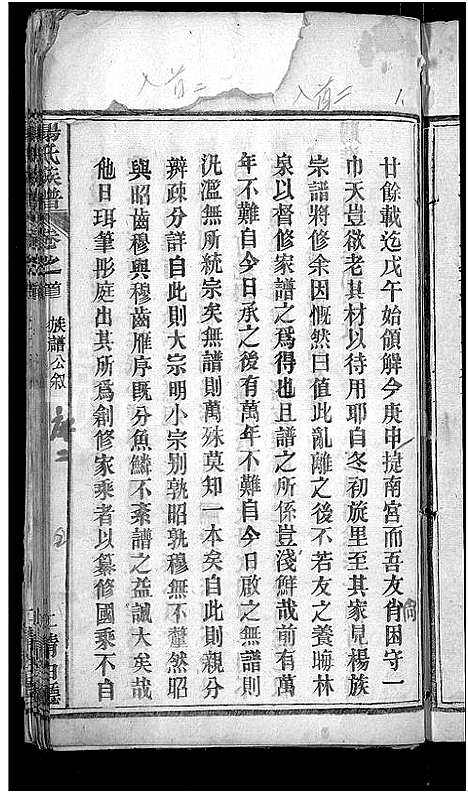 廿餘載迄戊午始領解今庚申捷南宮而吾友尙困守一
巾天豈欲老其材以待用耶自冬初旋里至其家見楊族
宗譜將修余因慨然曰値此亂離之後不若友之養晦林
泉以督修家譜之爲得也且譜之所係豈淺鮮哉前有萬
年不難自今日承之後有萬年不難自今日啟之無譜則
汎濫無所統宗矣無譜則萬殊莫知一本矣自此則親分
辨疎分詳自此則大宗明小宗别孰昭孰穆無不釐然昭
與昭齒穆與穆齒雁序旣分魚鱗不紊譜之益誠大矣哉
他日珥筆彤庭出其所爲創修家乘者以纂修國乘不自
楊氏族譜
卷之首
族譜公叙